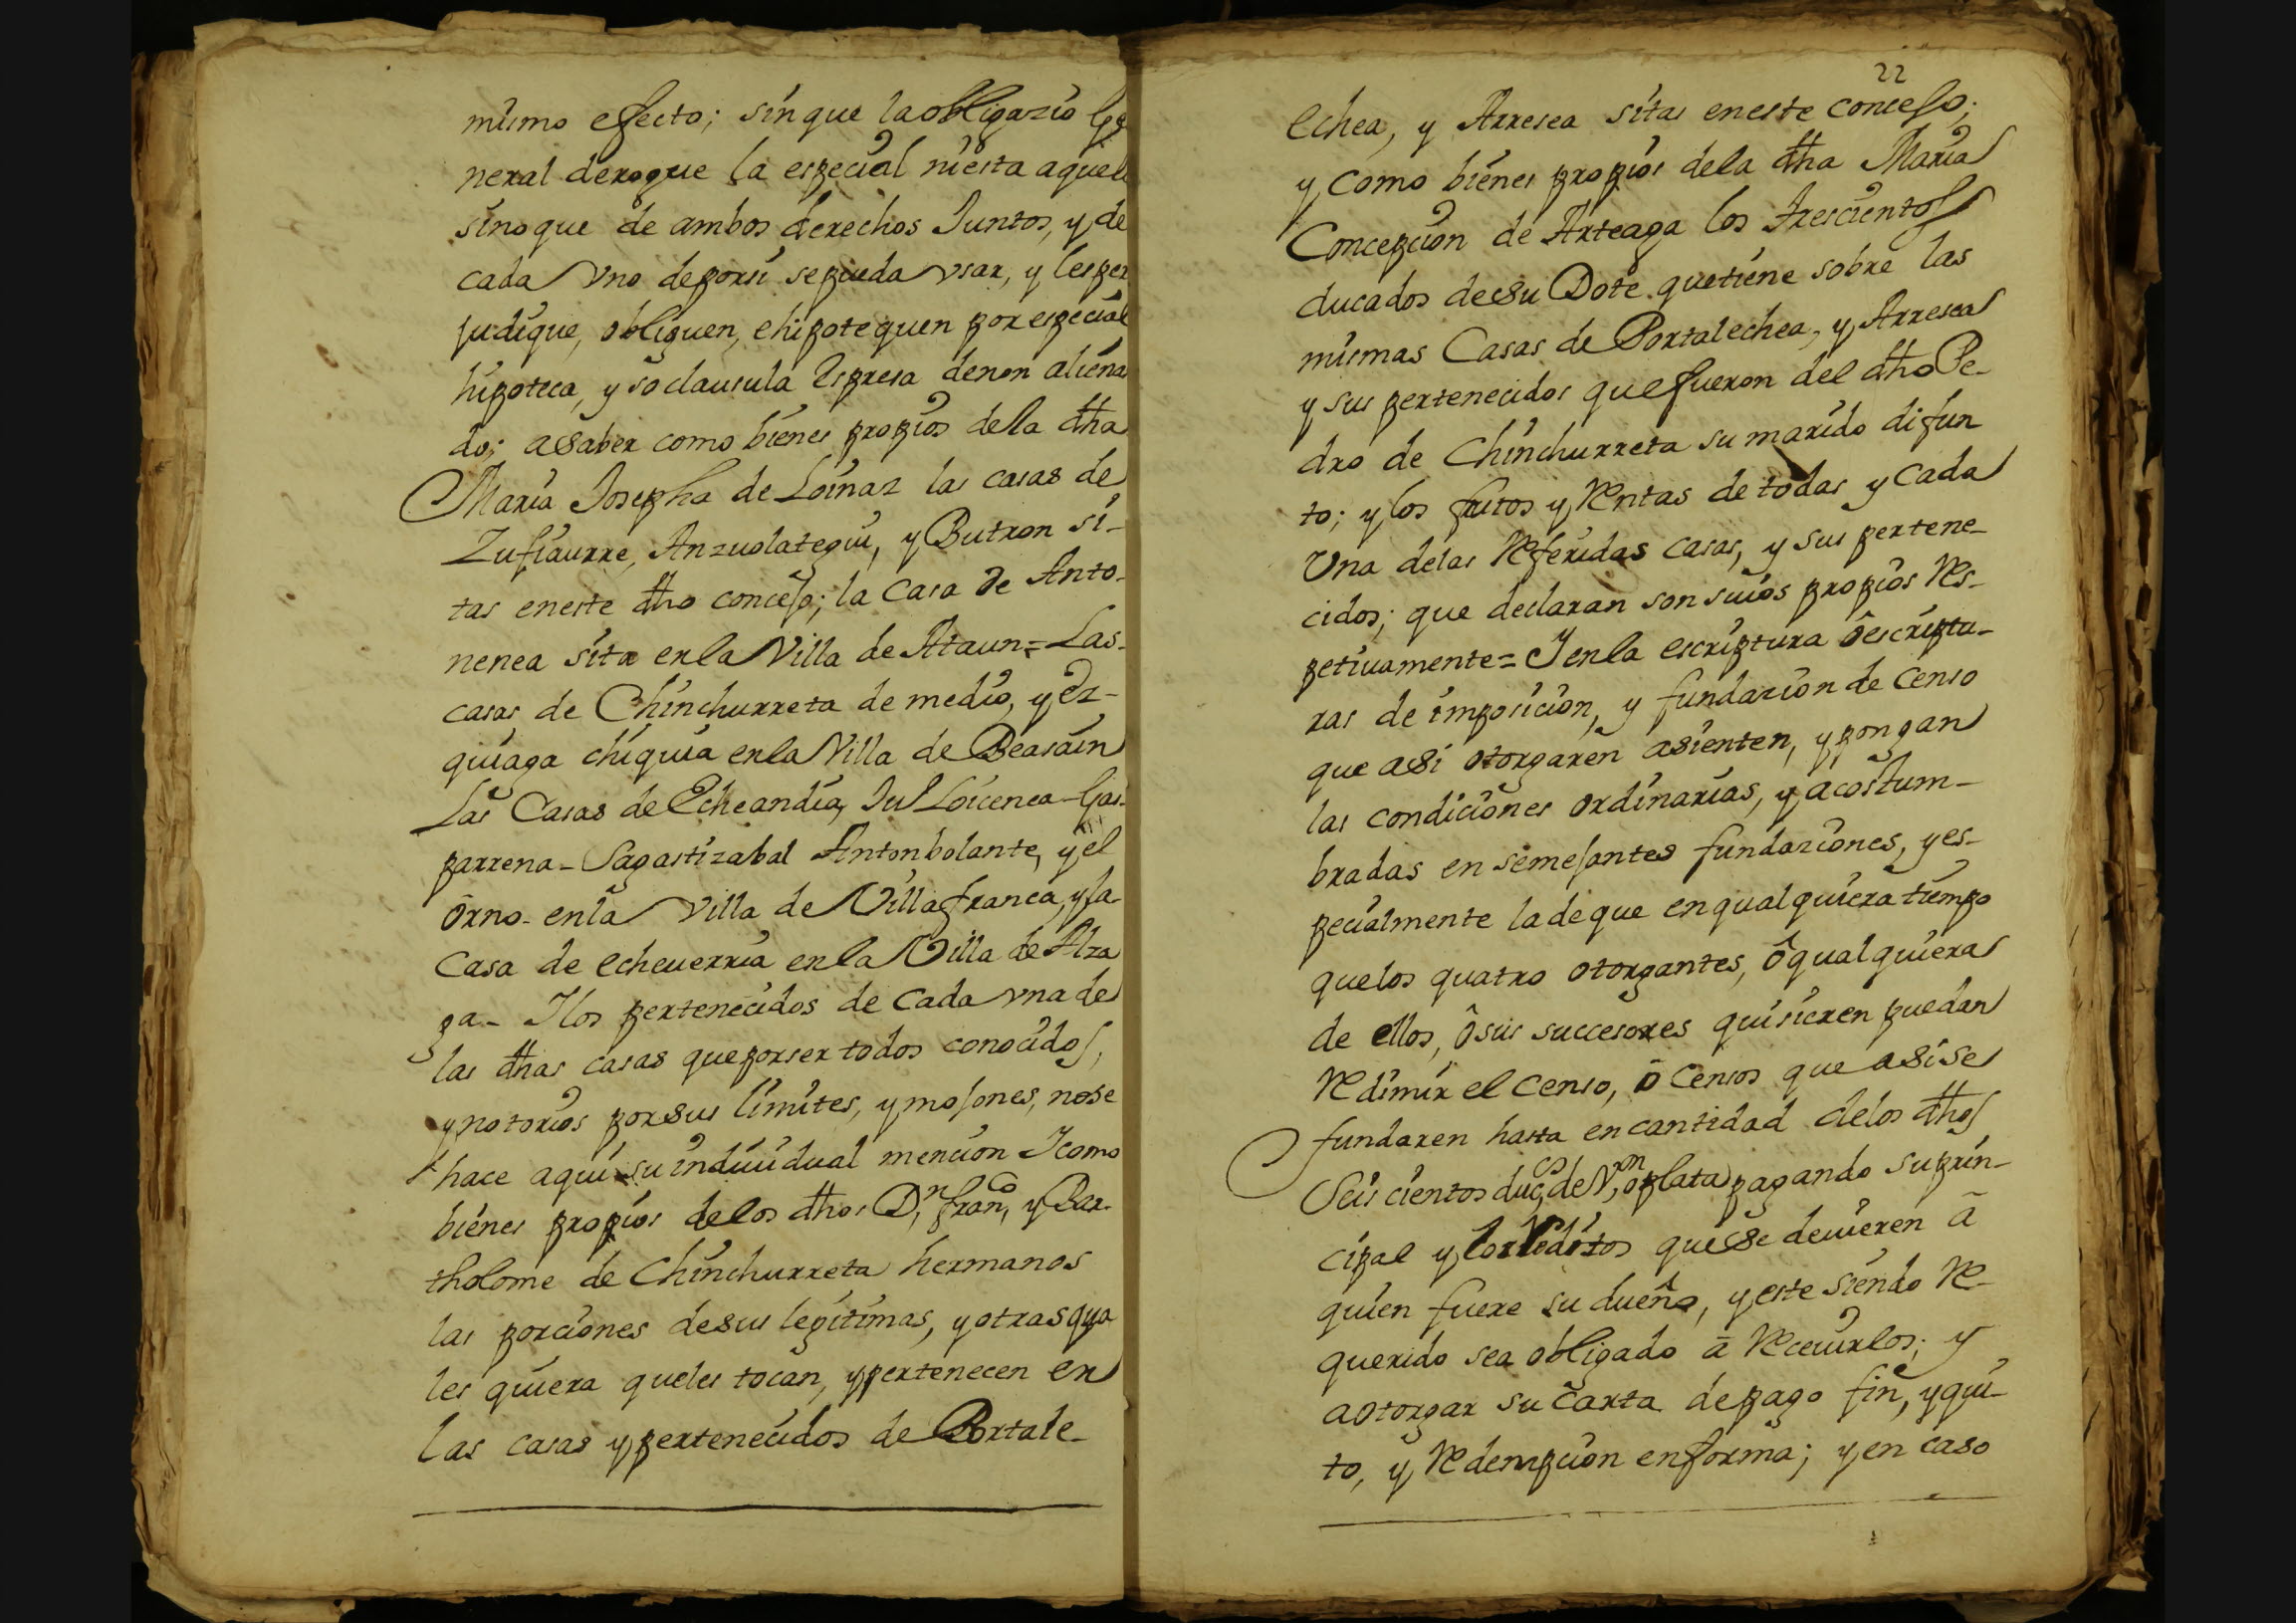 mismo efecto; sin que la obligazio Ge
neral derogue la especial niesta aquel
sino que de ambos derechos Juntos, y de
cada vno deporsi sepueda vsar, y lesper
judique, obliguen, ehipotequen por especial
hipoteca, y so clausula espresa denon aliena
do; asaber como bienes propios dela dha
Maria Josepha de Loinaz las casas de
Zufiaurre, Anzuolategui, y Butron si-
tas eneste dho concejo; la Casa de Anto-
nenea sita enla Villa de Ataun= Las-
casas de Chinchurreta de medio, y Ez-
quiaga chiquia enla Villa de Beasain
Las Casas de Echeandia, Loicenea-Gas-
parrena- Sagastizabal Antonbolante, y el
Orno- enla Villa de Villafranca, y la-
Casa de echeuerria enla Villa de Alza
ga- Ilos pertenecidos de cada vna de
las dhas casas queporser todos conocidos,
ynotorios porsus limites, ymojones, nose
hace aqui su indiuidual mencion Icomo
bienes propios delos dhos Dn, franco, y Bar-
tholome de Chinchurreta hermanos
las porciones desus legitimas, yotrasqua
les quiera queles tocan, ypertenecen en
las casas ypertenecidos de Portale-
22
echea, y Arresea sitas eneste concejo;
y como bienes propios dela dha Maria
Concepcion de Arteaga los Trescientos
ducados desu Dote quetiene sobre las
mismas Casas de Portalechea, y Arresea
y sus pertenecidos quefueron del dho Pe-
dro de Chinchurreta su marido difun
to; y los frutos y Rentas de todas y cada
Una delas Referidas casas, y sus pertene-
cidos; que declaran son suios propios Res-
petiuamente= Ienla escriptura ô escriptu-
ras de imposicion, y fundazion de Censo
que asi otorgaren asienten, ypongan
las condiciones ordinarias, y acostum-
bradas en semejantes fundaziones, yes-
pecialmente ladeque enqualquiera tiempo
quelos quatro otorgantes, ô qualquiera
de ellos, ô sus succesores quisieren puedan
Redimir el Censo, ô Censos que asise
fundaren hasta encantidad delos dhos
Seis cientos ducs, de Von, oplata pagando suprin-
cipal y losReditos quese deuieren â
quien fuere su dueño, y este siendo Re-
querido sea obligado â Receuirlos; y
aotorgar su carta depago fin, yqui-
to, y Redempcion enforma; y en caso